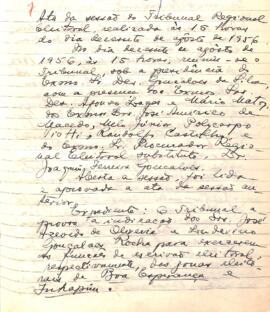 Ata da sessão do Tribunal Regional
Eleitoral realizada às 15 horas
do dia dezesete de agosto de 1956
No dia dezesete de agosto de
1956, às 15 horas, reuniu-se o
Tribunal, sob a presidência do
Exmo. Sr. Des. Gonçalves da Silva,
com a presença dos Exmos. Srs.
Des. Afonso Lages e Mário Matos,
dos Exmos. Drs. José Américo de
Macedo, Melo Júnior, Policarpo
Viotti,
do Exmo. Sr. Procurador Regio-
nal Eleitoral substituto, Dr.
Joaquim Ferreira Gonçalves.
Aberta a sessão, foi lida
e aprovada a ata da sessão an-
terior.
Expediente: O Tribunal a-
provou a indicação dos Srs. José
Azevedo de Oliveira e
Gonçalves Rocha para exercerem
as funções de escrivão eleitoral,
respectivamente, das zonas eleito-
rais de Boa Esperança e